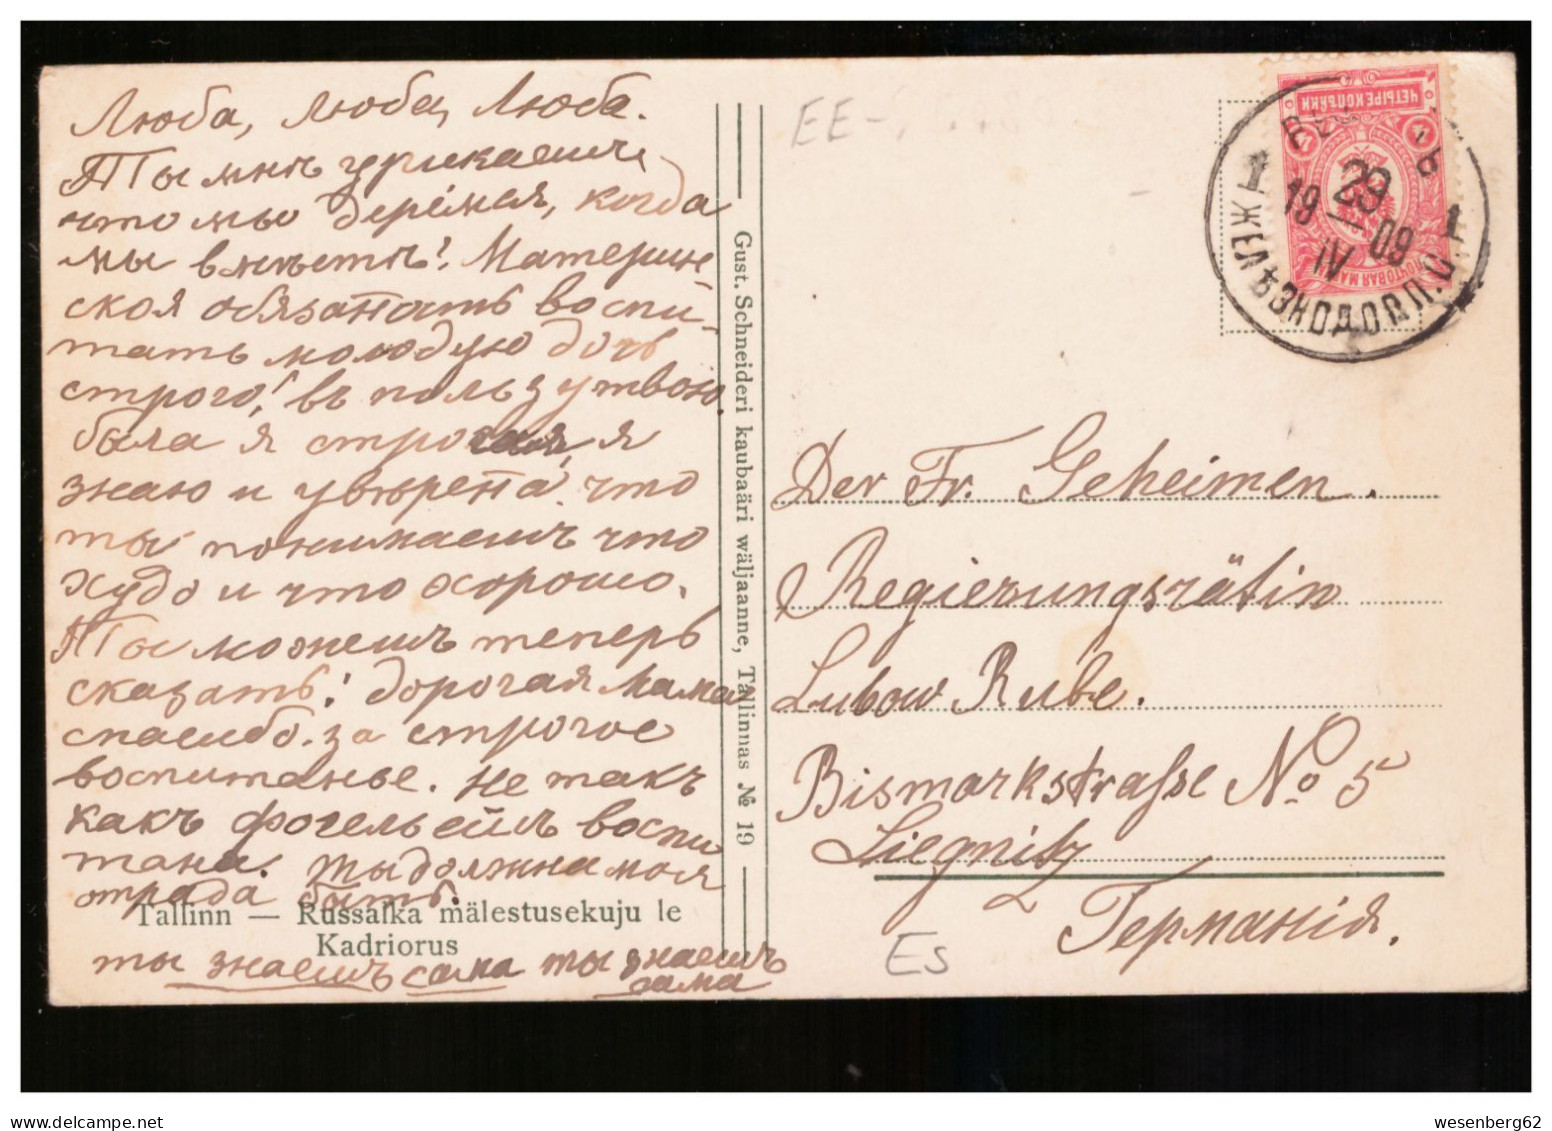 Люба, Люба, Люба.
Ты мнѣ упрекаешь,
что мы
когда
мы вместѣ! Материн
ская обязаность воспи-
тать молодую дочь
строго! въ пользу твою.
была я строгая, я
знаю и увѣрена что
ты понимаешь что
худо и что хорошо.
Ты можешь теперь
сказать: дорогая мама
спасибо за строгое
воспитанье. Не такъ
какъ воспи
тана. Ты должна моя
отрада быть.
ты знаешь сама ты знаешь
сама
Tallinn — Russalka mälestusekuju le
Kadriorus
Gust. Schneideri kaubaäri wäljaanne, Tallinnas № 19
EE-
ЧЕТЫРЕ КОПѢЙКИ
ПОЧТОВАЯ МАРКА
ЖЕЛѢЗНОДОР. П.
19 29 09
IV
Der Fr. Geheimen.
Regierungsrätin
Lubow Rube.
Bismarkstrasse No 5
Liegnitz
Германія.
Es
wesenberg62